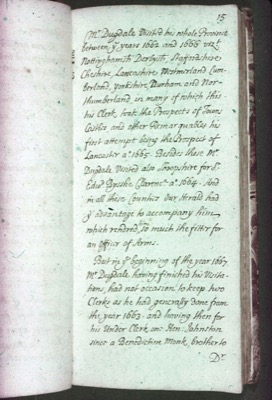 15
Mr Dugdale Visited his whole Province
between ye years 1662 and 1666 vizt
Nottinghamsh Derbysh, Staffordshire
Cheshire, Lancashire, Westmerland Cum-
berland, Yorkshire, Durham and Nor-
thumberland in many of which this
his Clerk, took the Prospects of Towns
Castles and other Remarquables his
first attempt being the Prospect of
Lancaster ao 1665. Besides these Mr
Dugdale Visited also Shropshire for Sr
Edw Bysshe Clarenct ao 1664. And
in all these Counties our Herald had
ye advantage to accompany him
which rendred him so much the fitter for
an Officer of Arms.
But in ye beginning of the year 1667
Mr Dugdale, having finished his Visita-
tions, had not occasion to keep two
Clerks as he had generally done from
the year 1663. and having then for
his Under Clerk, one Hen: Johnston
since a Benedictine Monk, brother to
Dr